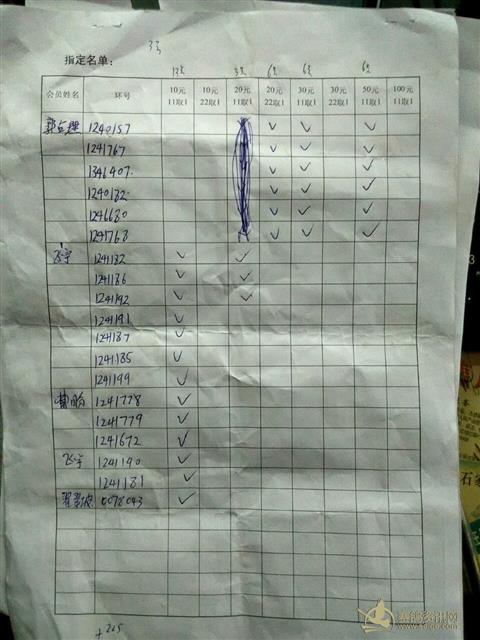 指定名单:
13只 3只 6只 6只 6只
会员姓名 环号 10元 11取1 10元 22取1 20元 11取1 20元 22取1 30元 11取1 30元 22取1 50元 11取1 100元 11取1
1240157 ✓ ✓ ✓
1241767 ✓ ✓ ✓
1346407 ✓ ✓ ✓
1240182 ✓ ✓ ✓
1246680 ✓ ✓ ✓
1241768 ✓ ✓ ✓
飞宇 1241132 ✓ ✓
1241186 ✓ ✓
1241192 ✓ ✓
1241191 ✓
1241187 ✓
1241185 ✓
1241199 ✓
1241778 ✓
1241779 ✓
1241672 ✓
飞宇 1241190 ✓
1241181 ✓
0078043 ✓
+225